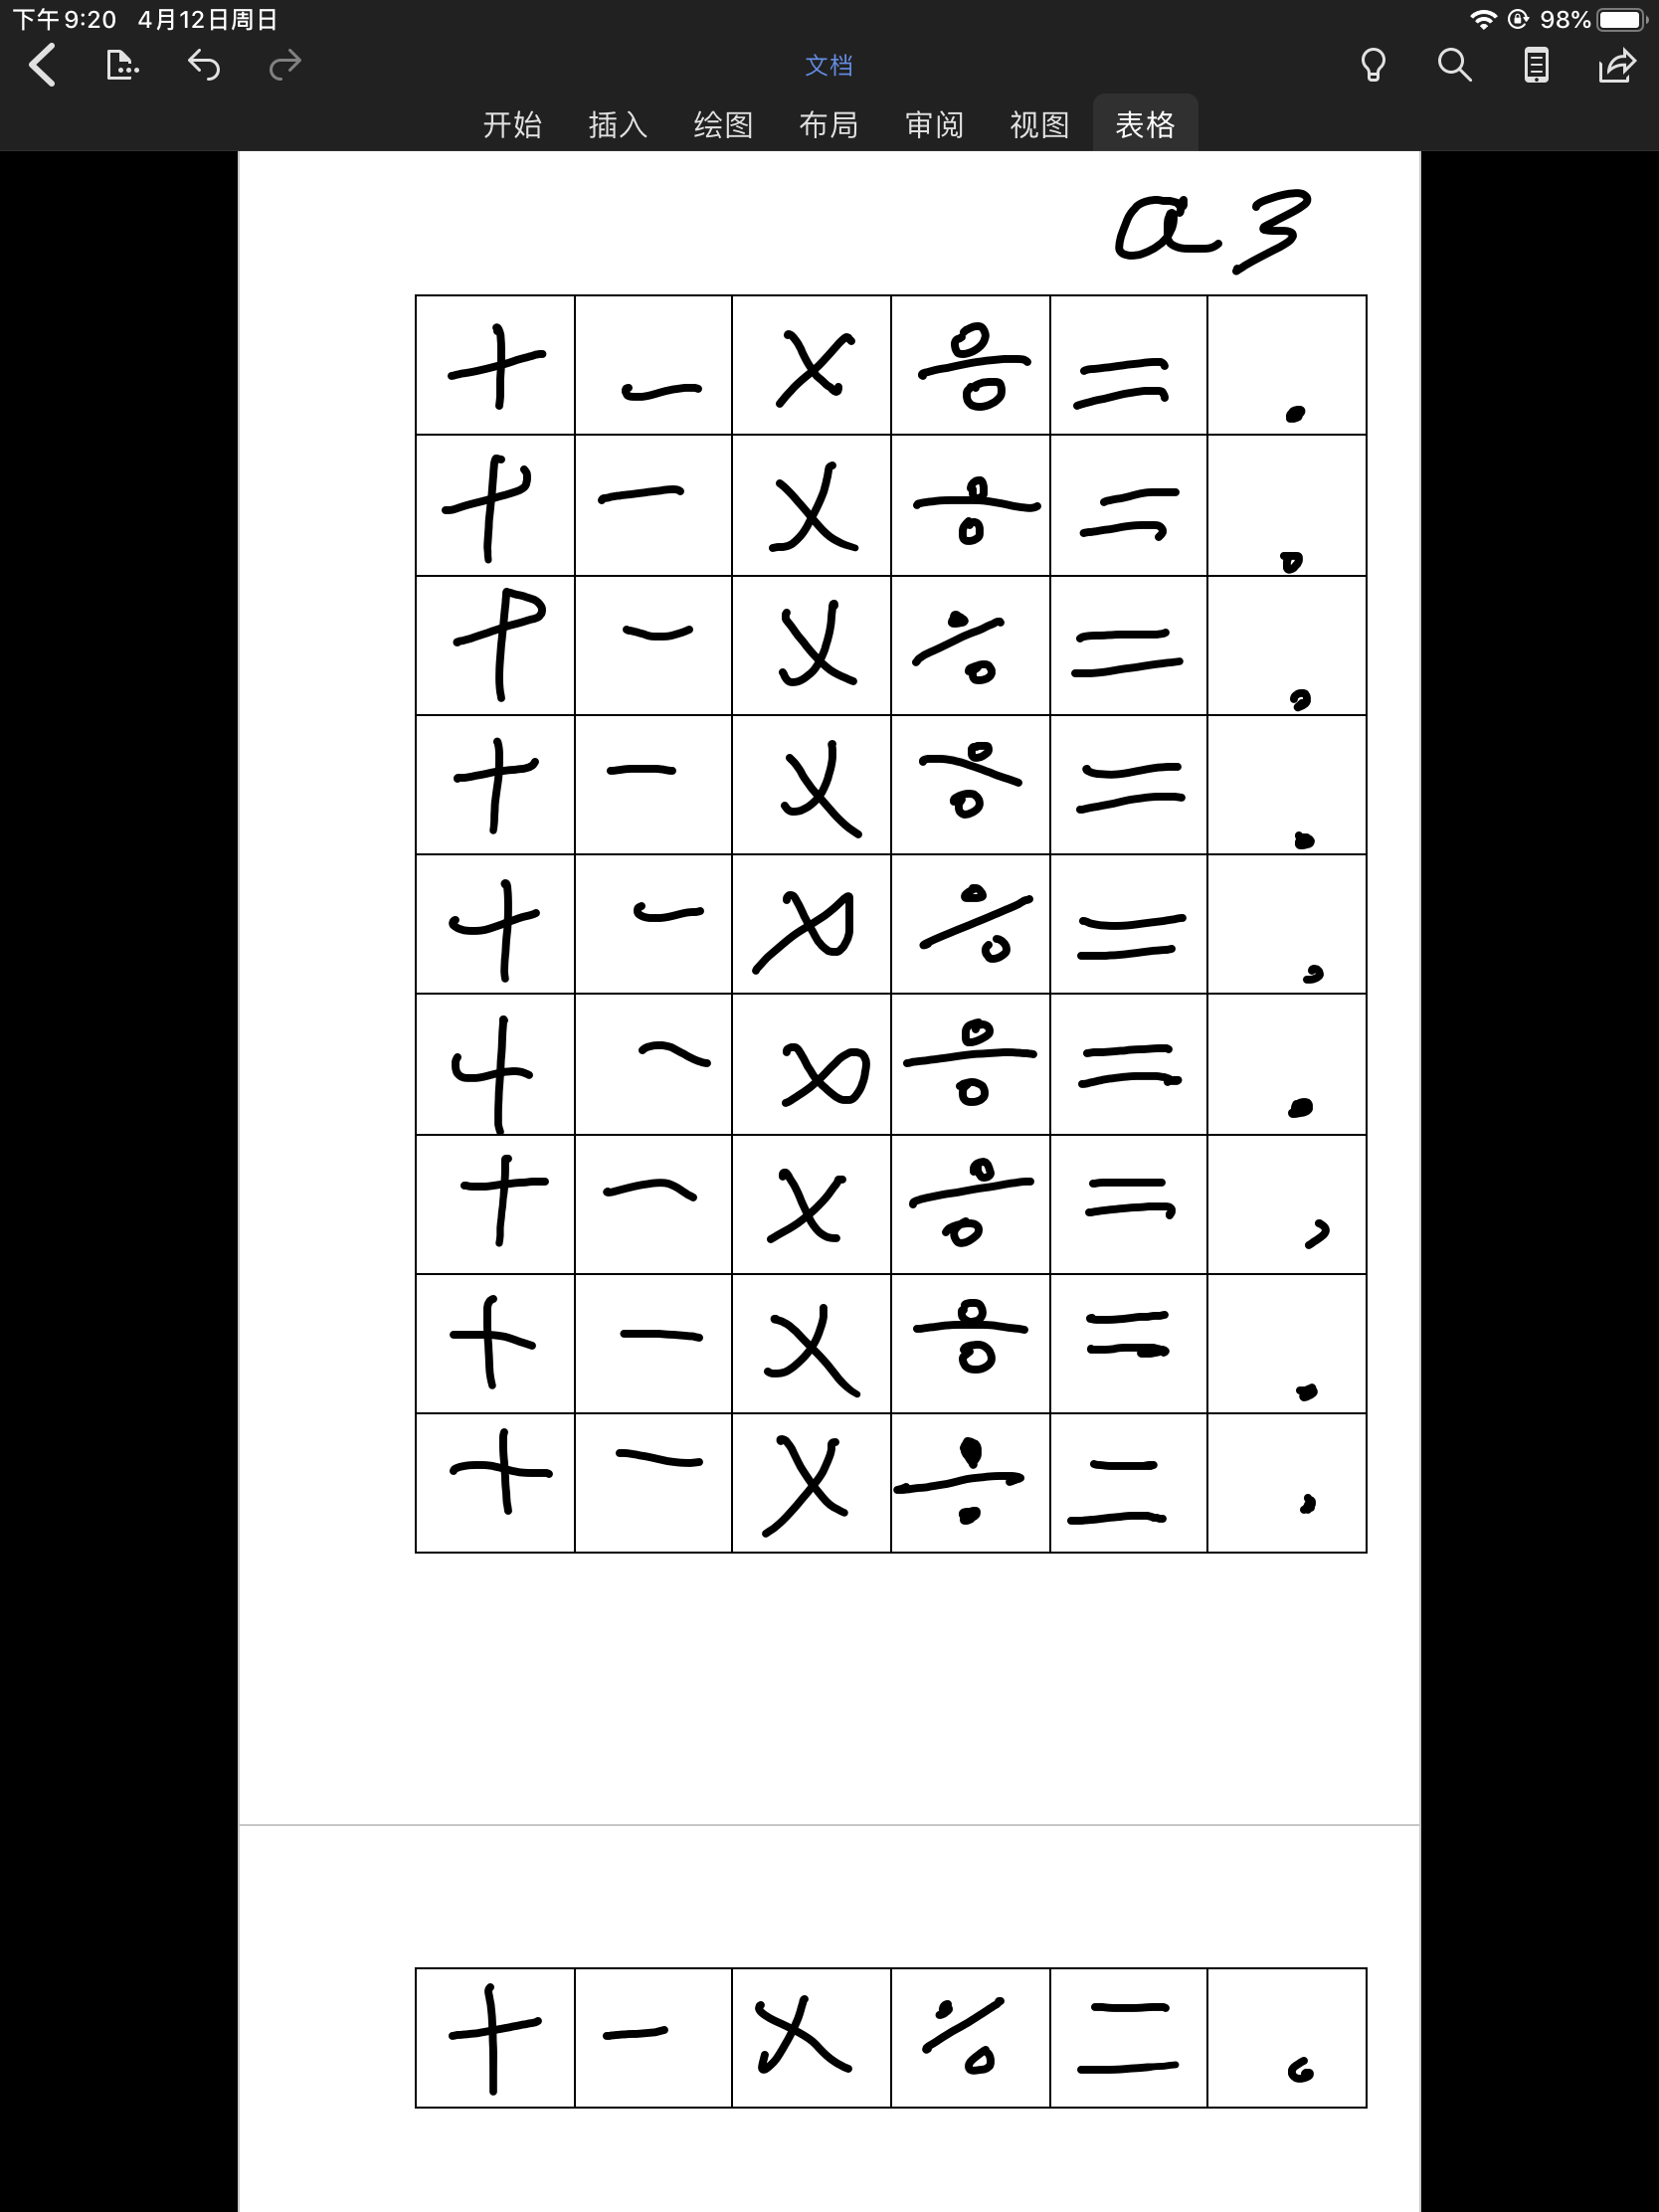 下午9:20 4月12日周日 98%
文档
开始 插入 绘图 布局 审阅 视图 表格
a3
+ - × ÷ = .
+ - × ÷ = .
+ - × ÷ = .
+ - × ÷ = .
+ - × ÷ = .
+ - × ÷ = .
+ - × ÷ = .
+ - × ÷ = .
+ - × ÷ = .
+ - × ÷ = .